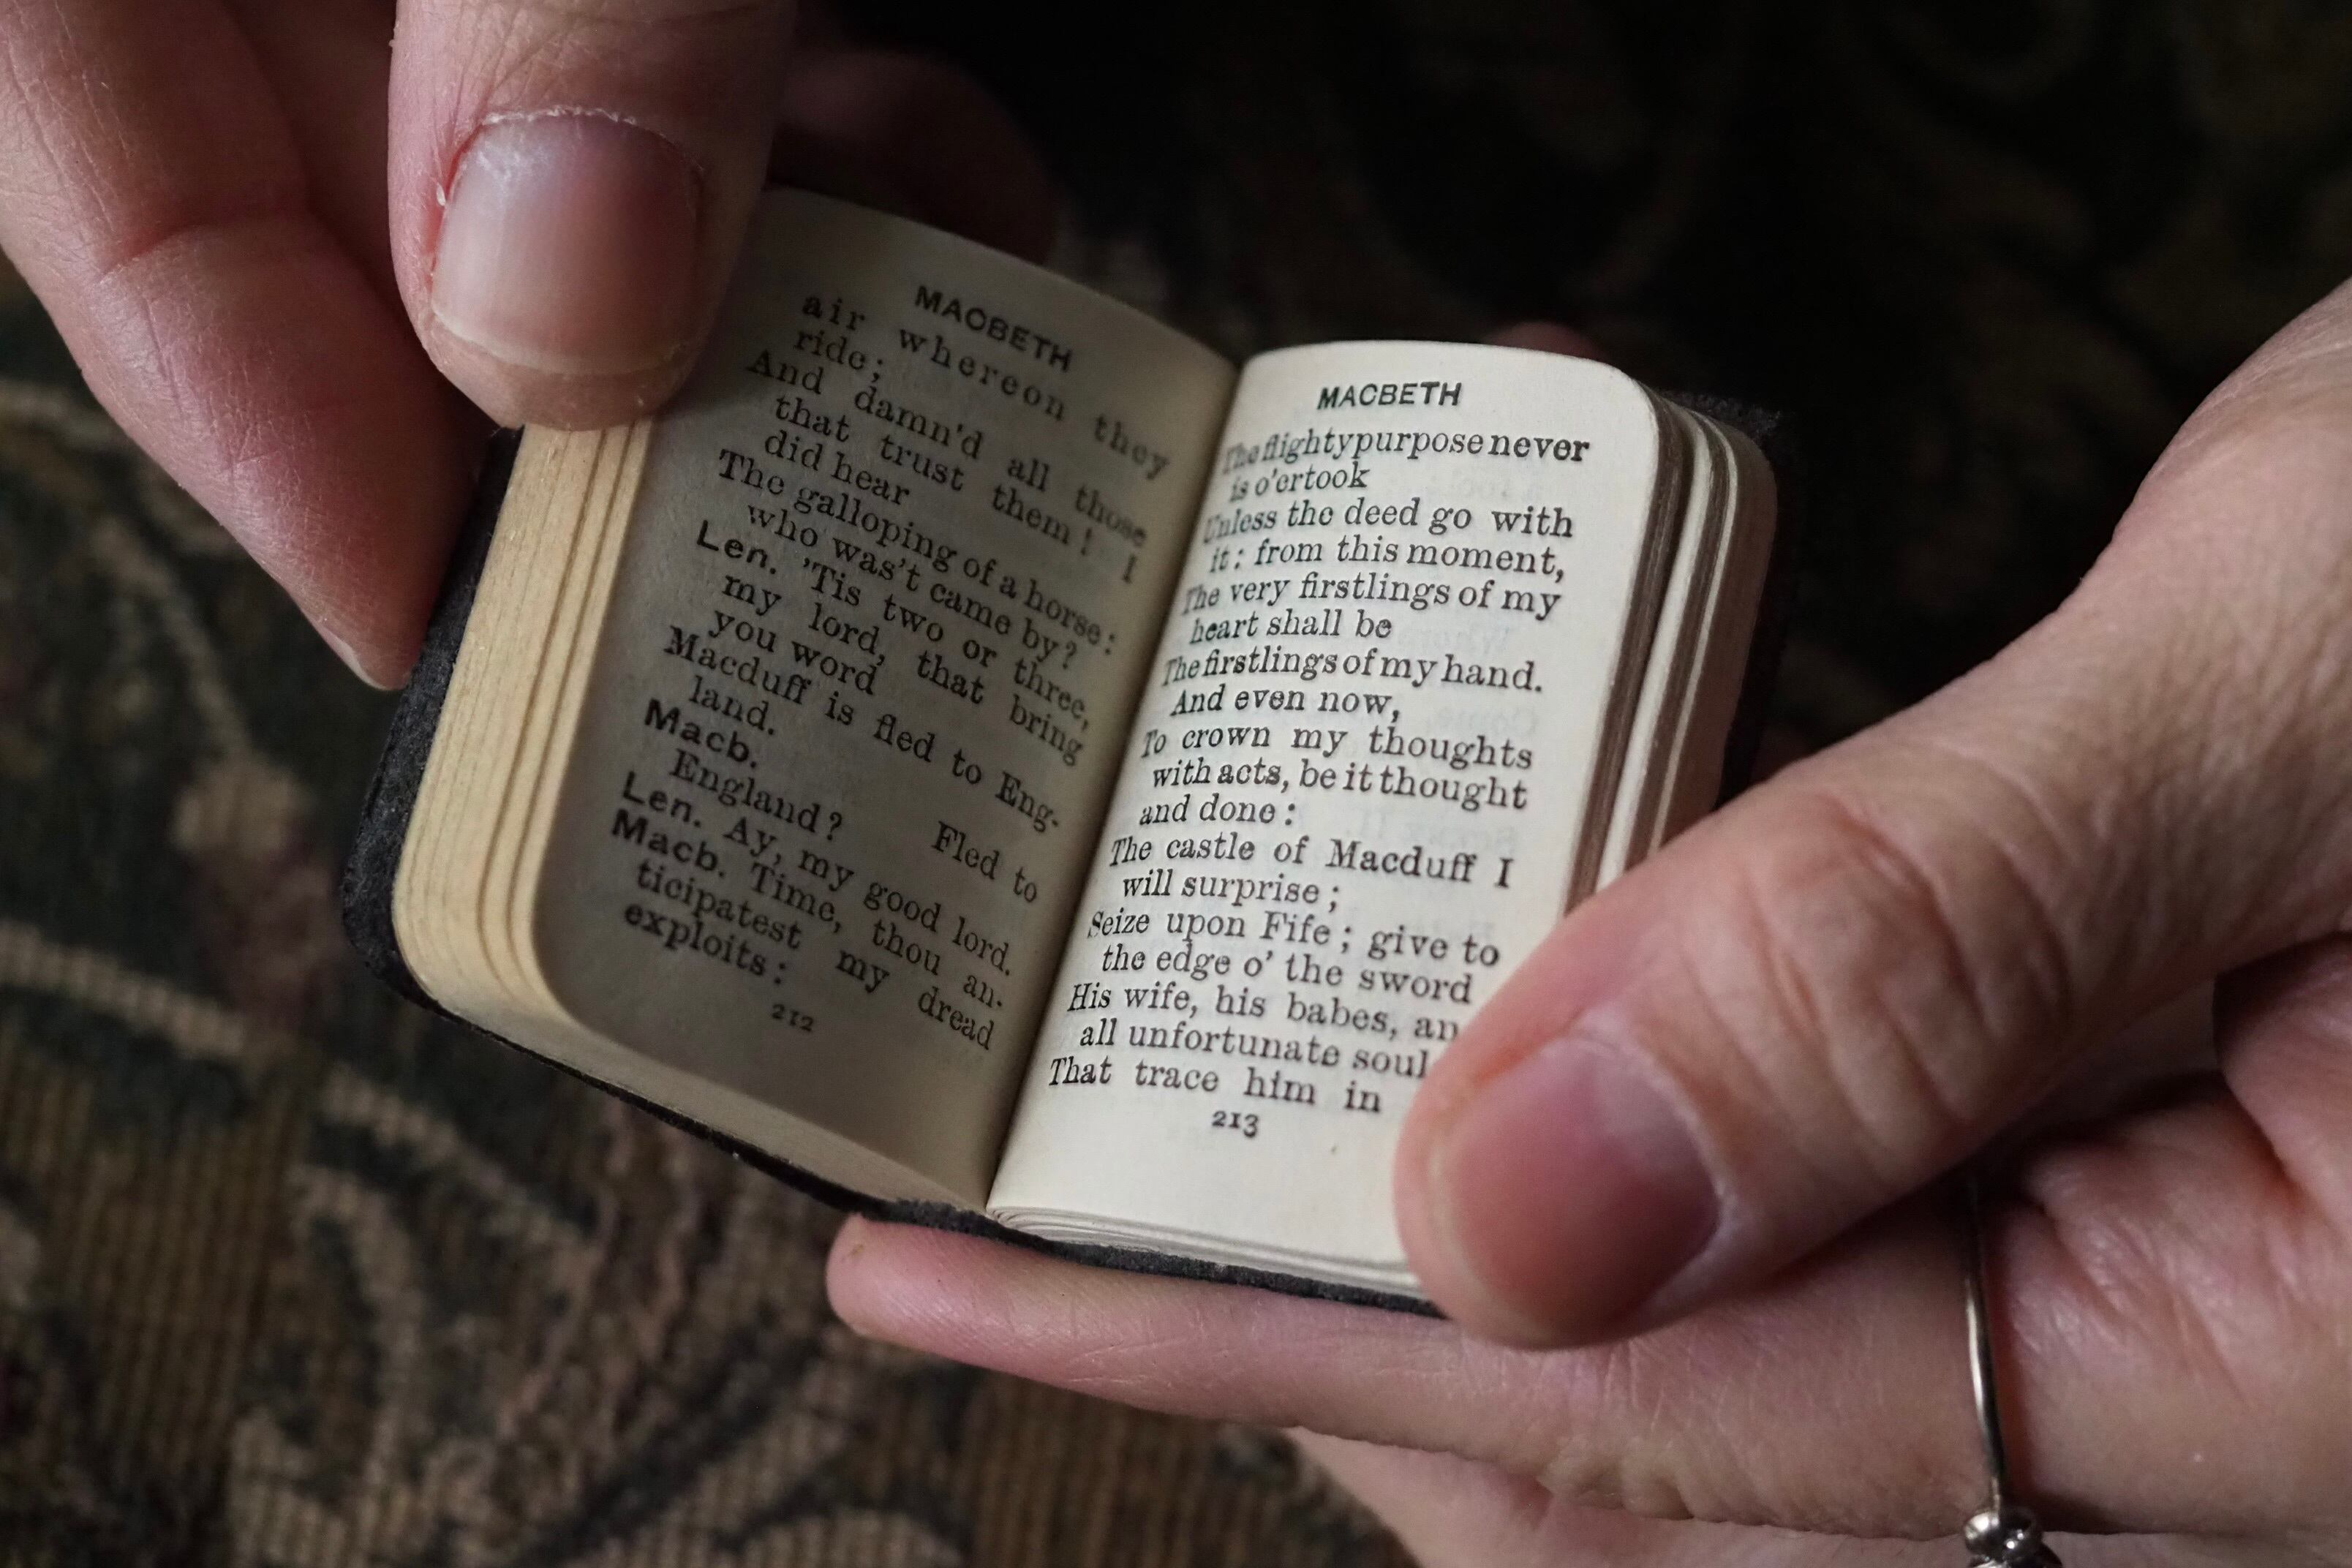 MACBETH
air whereon they
ride;
And damn'd all those
that trust them! I
did hear
The galloping of a horse:
who was't came by?
Len. 'Tis two or three,
my lord, that bring
you word
Macduff is fled to Eng-
land.
Macb. Fled to
England?
Len. Ay, my good lord.
Macb. Time, thou an-
ticipatest my dread
exploits:
212
MACBETH
The flighty purpose never
is o'ertook
Unless the deed go with
it: from this moment,
The very firstlings of my
heart shall be
The firstlings of my hand.
And even now,
To crown my thoughts
with acts, be it thought
and done:
The castle of Macduff I
will surprise;
Seize upon Fife; give to
the edge o' the sword
His wife, his babes, an
all unfortunate soul
That trace him in
213